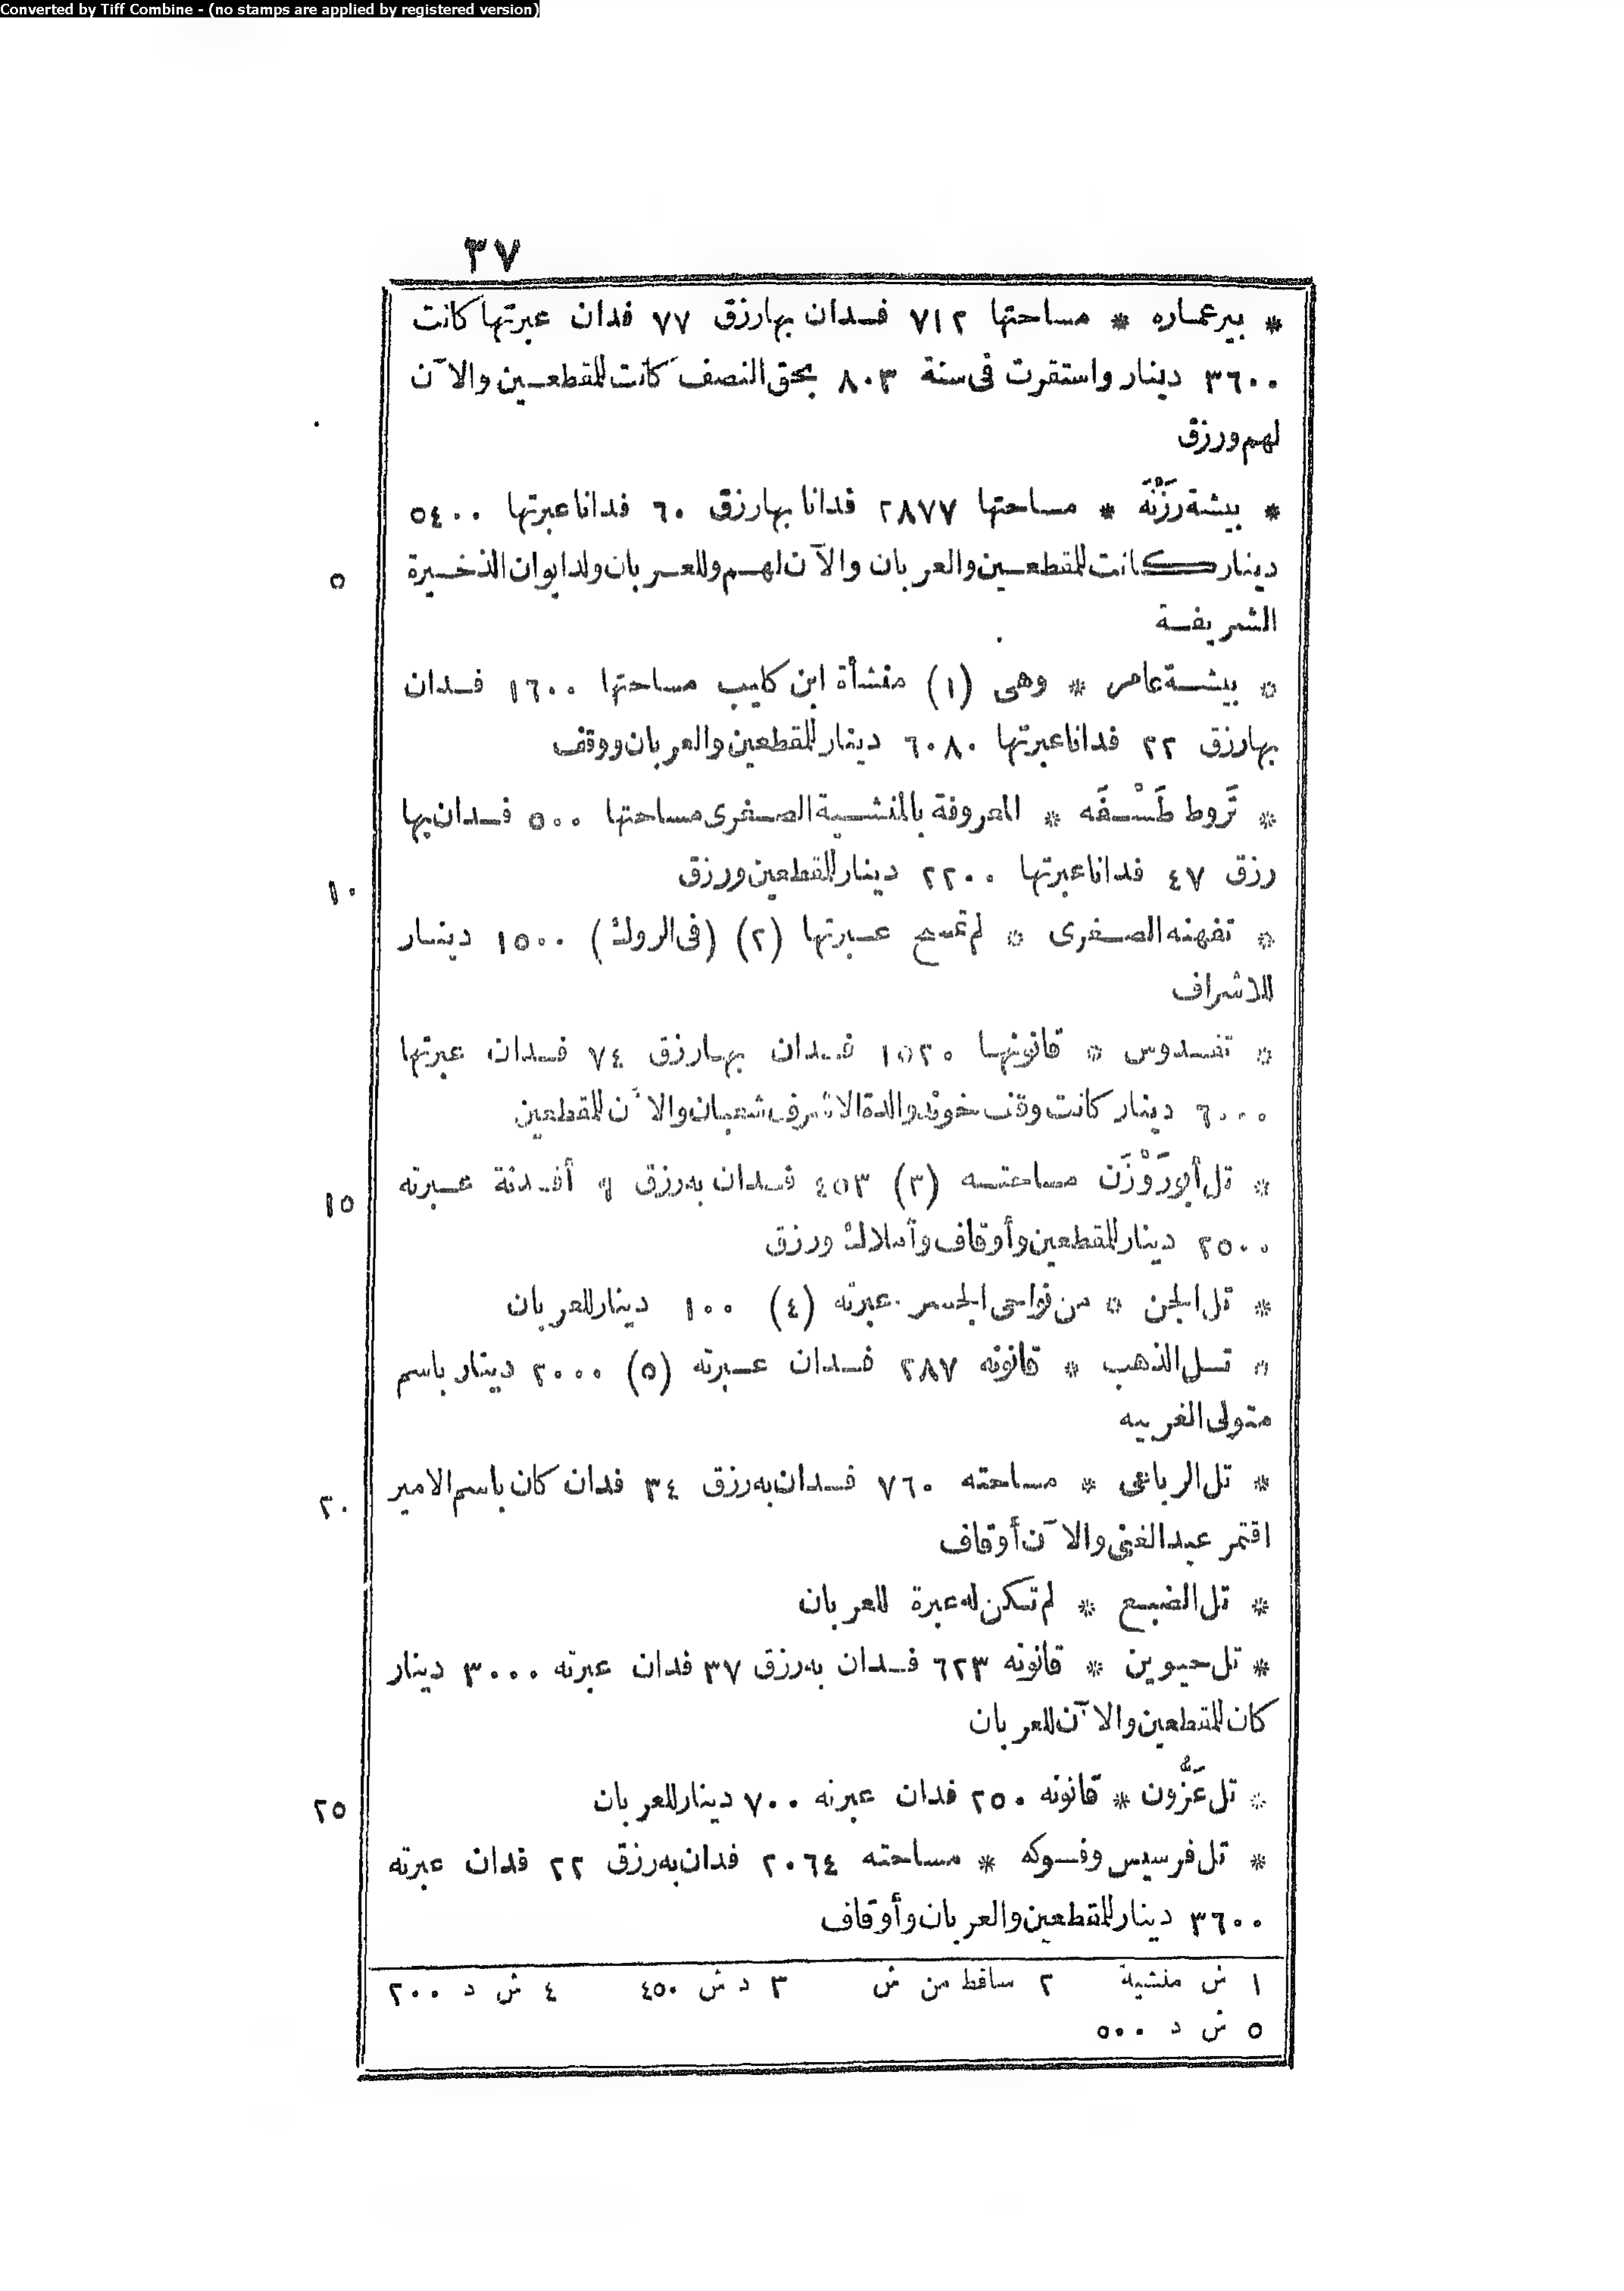 Converted by Tiff Combine - (no stamps are applied by registered version)
٣٧
* بيرعماره * مساحتها ٧١٢ فدان بها رزق ٧٧ فدان عبرتها كانت
٣٦٠٠ دينار واستقرت فى سنة ٨٠٣ بحق النصف كانت للمقطعين والآن
لهم ورزق
* بيشة رَزْنَه * مساحتها ٢٨٧٧ فدانا بها رزق ٦٠ فدانا عبرتها ٥٤٠٠
٥ دينار كانت للمقطعين والعربان والآن لهم وللعربان ولديوان الذخيرة
الشريفة
* بيشة عامر * وهى (١) منشأة ابن كليب مساحتها ١٦٠٠ فدان
بها رزق ٢٢ فدانا عبرتها ٦٠٨٠ دينار للمقطعين والعربان ووقف
* تَروط طَسْفَه * المعروفة بالمنشية الصغرى مساحتها ٥٠٠ فدان بها
١٠ رزق ٤٧ فدانا عبرتها ٢٢٠٠ دينار للمقطعين ورزق
* تفهنه الصغرى * لم تمسح عبرتها (٢) (فى الروك) ١٥٠٠ دينار
للاشراف
* تفدوس * قانونها ١٥٢٠ فدان بها رزق ٧٤ فدان عبرتها
٦٠٠٠ دينار كانت وقف خوند والدة الاشرف شعبان والآن للمقطعين
١٥ * تل أبو رَوْزَن مساحته (٣) ٤٥٣ فدان به رزق ٩ أفدنة عبرته
٢٥٠٠ دينار للمقطعين وأوقاف وأملاك ورزق
* تل الجن * من نواحى الجسر عبرته (٤) ١٠٠ دينار للعربان
* تل الذهب * قانونه ٢٨٧ فدان عبرته (٥) ٢٠٠٠ دينار باسم
متولى الغربيه
٢٠ * تل الرباعى * مساحته ٧٦٠ فدان به رزق ٣٤ فدان كان باسم الامير
اقتمر عبد الغنى والآن أوقاف
* تل الضبع * لم تكن له عبرة للعربان
* تل حيوين * قانونه ٦٢٣ فدان به رزق ٣٧ فدان عبرته ٣٠٠٠ دينار
كان للمقطعين والآن للعربان
٢٥ * تل عَزُّون * قانونه ٢٥٠ فدان عبرته ٧٠٠ دينار للعربان
* تل فرسيس وفسوكه * مساحته ٢٠٦٤ فدان به رزق ٢٢ فدان عبرته
٣٦٠٠ دينار للمقطعين والعربان وأوقاف
١ ش منشية ٢ ساقط من ش ٣ د ش ٤٥٠ ٤ ش د ٢٠٠
٥ ش د ٥٠٠